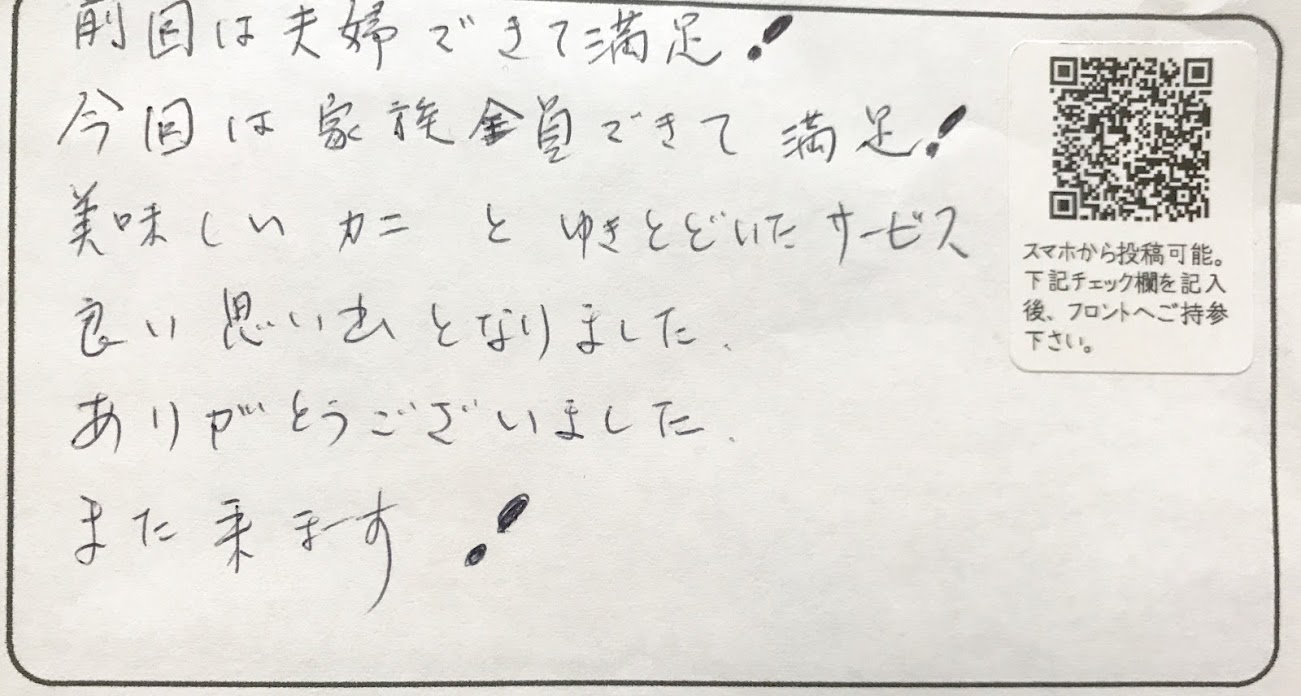 前回は夫婦できて満足!
今回は家族全員できて満足!
美味しいカニとゆきとどいたサービス
良い思い出となりました.
ありがとうございました.
また来まーす!
スマホから投稿可能。
下記チェック欄を記入
後、フロントへご持参
下さい。